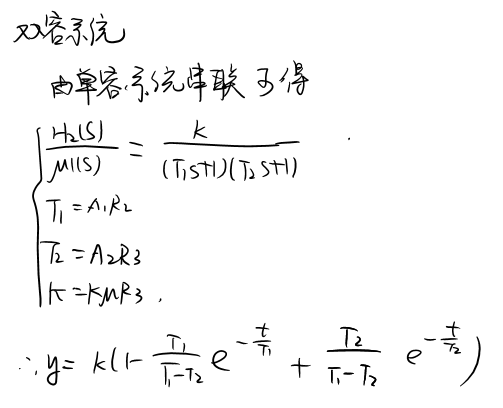 双容系统
由单容系统串联可得
H₂(S)/μ1(S) = K/((T₁S+1)(T₂S+1))
T₁ = A₁R₂
T₂ = A₂R₃
K = KμR₃ .
∴ y = K(1 - T₁/(T₁-T₂) e^(-t/T₁) + T₂/(T₁-T₂) e^(-t/T₂))